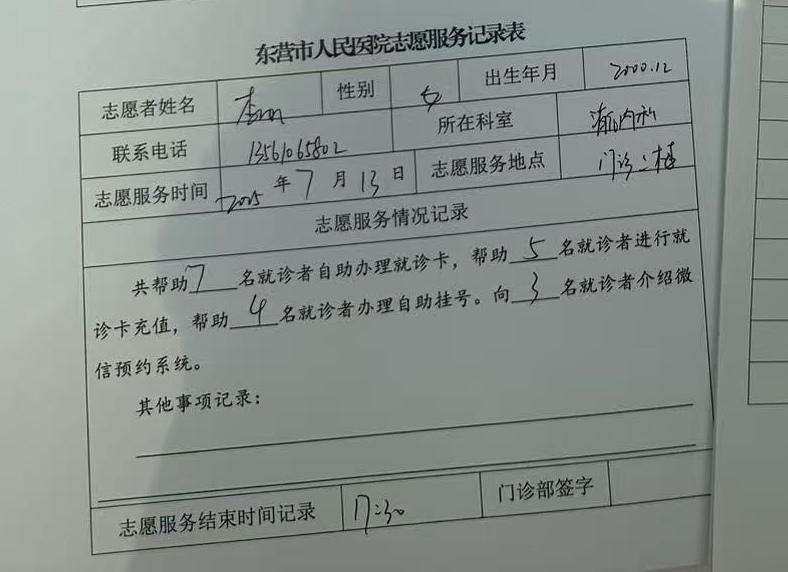 东营市人民医院志愿服务记录表
志愿者姓名 性别 女 出生年月 2000.12
联系电话 13561065802 所在科室 消化内科
志愿服务时间 2025年7月13日 志愿服务地点 门诊二楼
志愿服务情况记录
共帮助7名就诊者自助办理就诊卡，帮助5名就诊者进行就
诊卡充值，帮助4名就诊者办理自助挂号。向3名就诊者介绍微
信预约系统。
其他事项记录：
志愿服务结束时间记录 17:30 门诊部签字